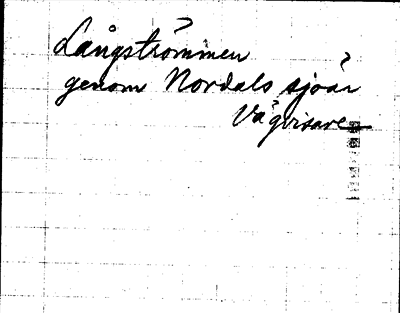 Långströmmen
genom Nordals sjöar
Vägvisare